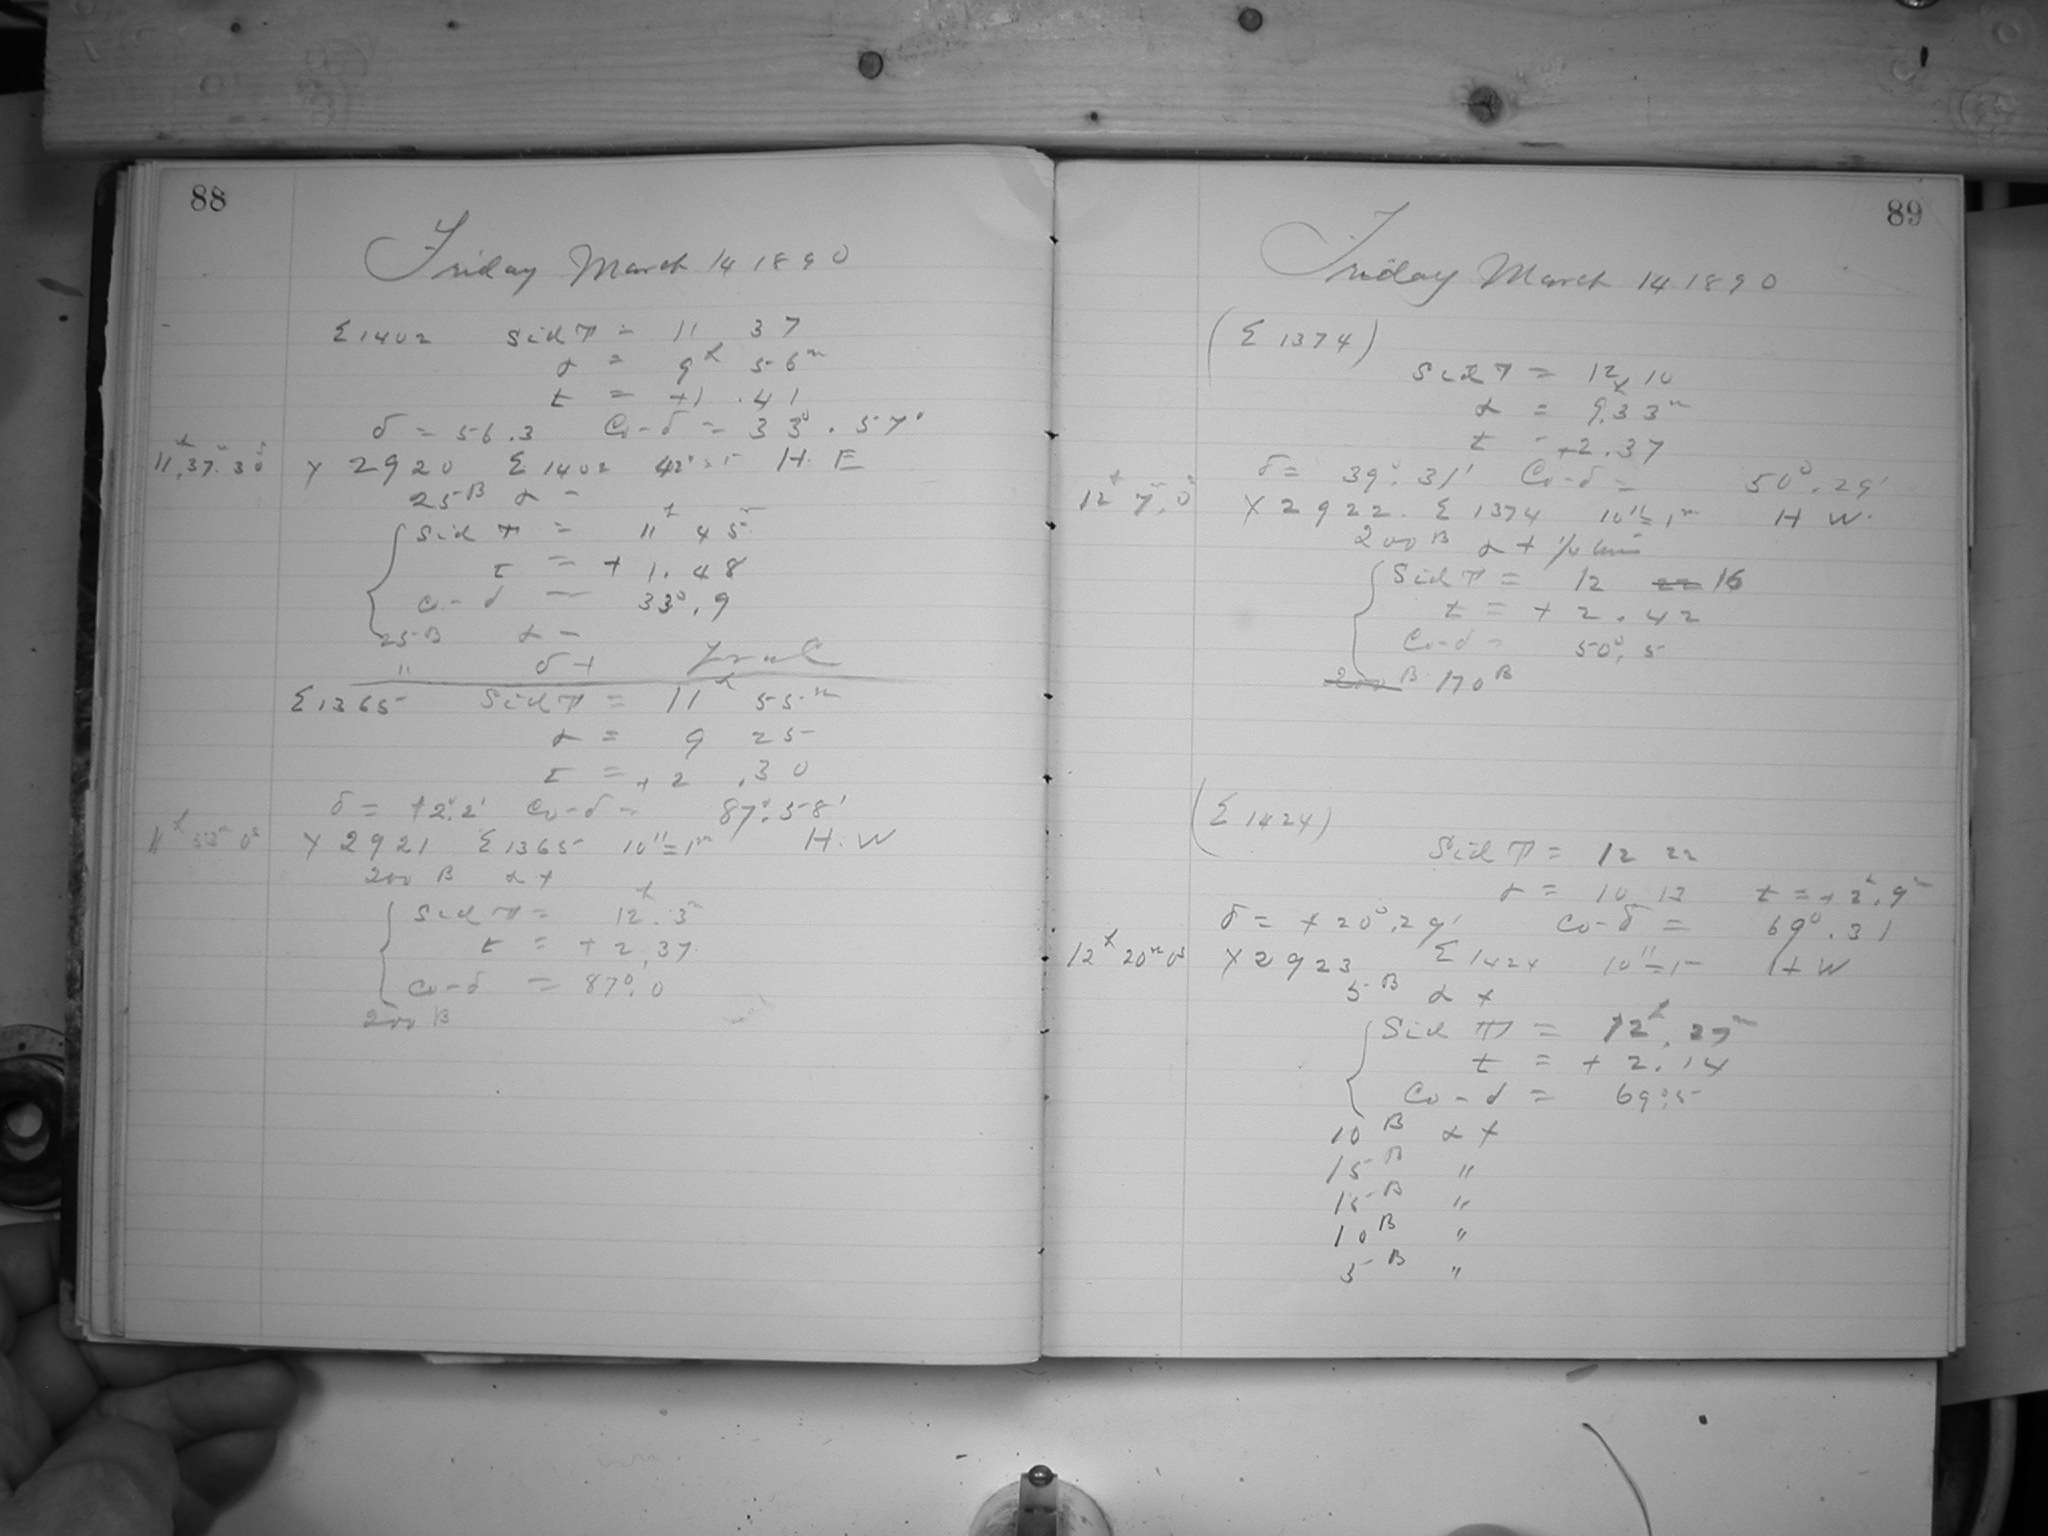 88
Friday March 14 1890
Σ1402 Sid T = 11 37
α = 9h 56m
t = +1.41
δ = 56.3 Co-δ = 33°.57'
11h.37m.30s X 2920 Σ 1402 H. E
25B α -
Sid T = 11h 45m
t = + 1.48
Co-δ = 33°.9
25B α -
" δ +
Σ1365 Sid T = 11h 55m
α = 9 25
t = +2.30
δ = +2°.2' Co-δ = 87°.58'
11h 53m 0s X 2921 Σ1365 10"=1m H. W
200 B α +
Sid T = 12h.3m
t = + 2.37.
Co-δ = 87°.0
200 B
89
Friday March 14 1890
(Σ 1374)
Sid T = 12h 10
α = 9h.33m
t = +2.37
δ = 39°.31' Co-δ = 50°.29'
12h 7m.0s X 2922. Σ 1374 10"=1m H W.
200 B α +
Sid T = 12 22 16
t = + 2.42
Co-δ = 50°.5
200 B 170B
(Σ 1424)
Sid T = 12 22
α = 10 13 t = +2h.9m
δ = + 20°.29' Co-δ = 69°.31
12h 20m 0s X 2923 Σ 1424 10"=1m H W
5B α +
Sid T = 12h.27m
t = + 2.14
Co-δ = 69°.5
10 B α +
15 B "
15 B "
10 B "
5 B "